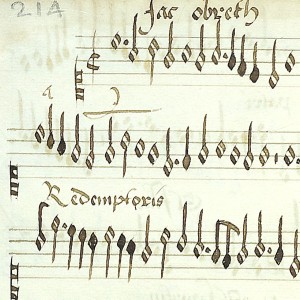 214
Jac obreth
A
Redemptoris